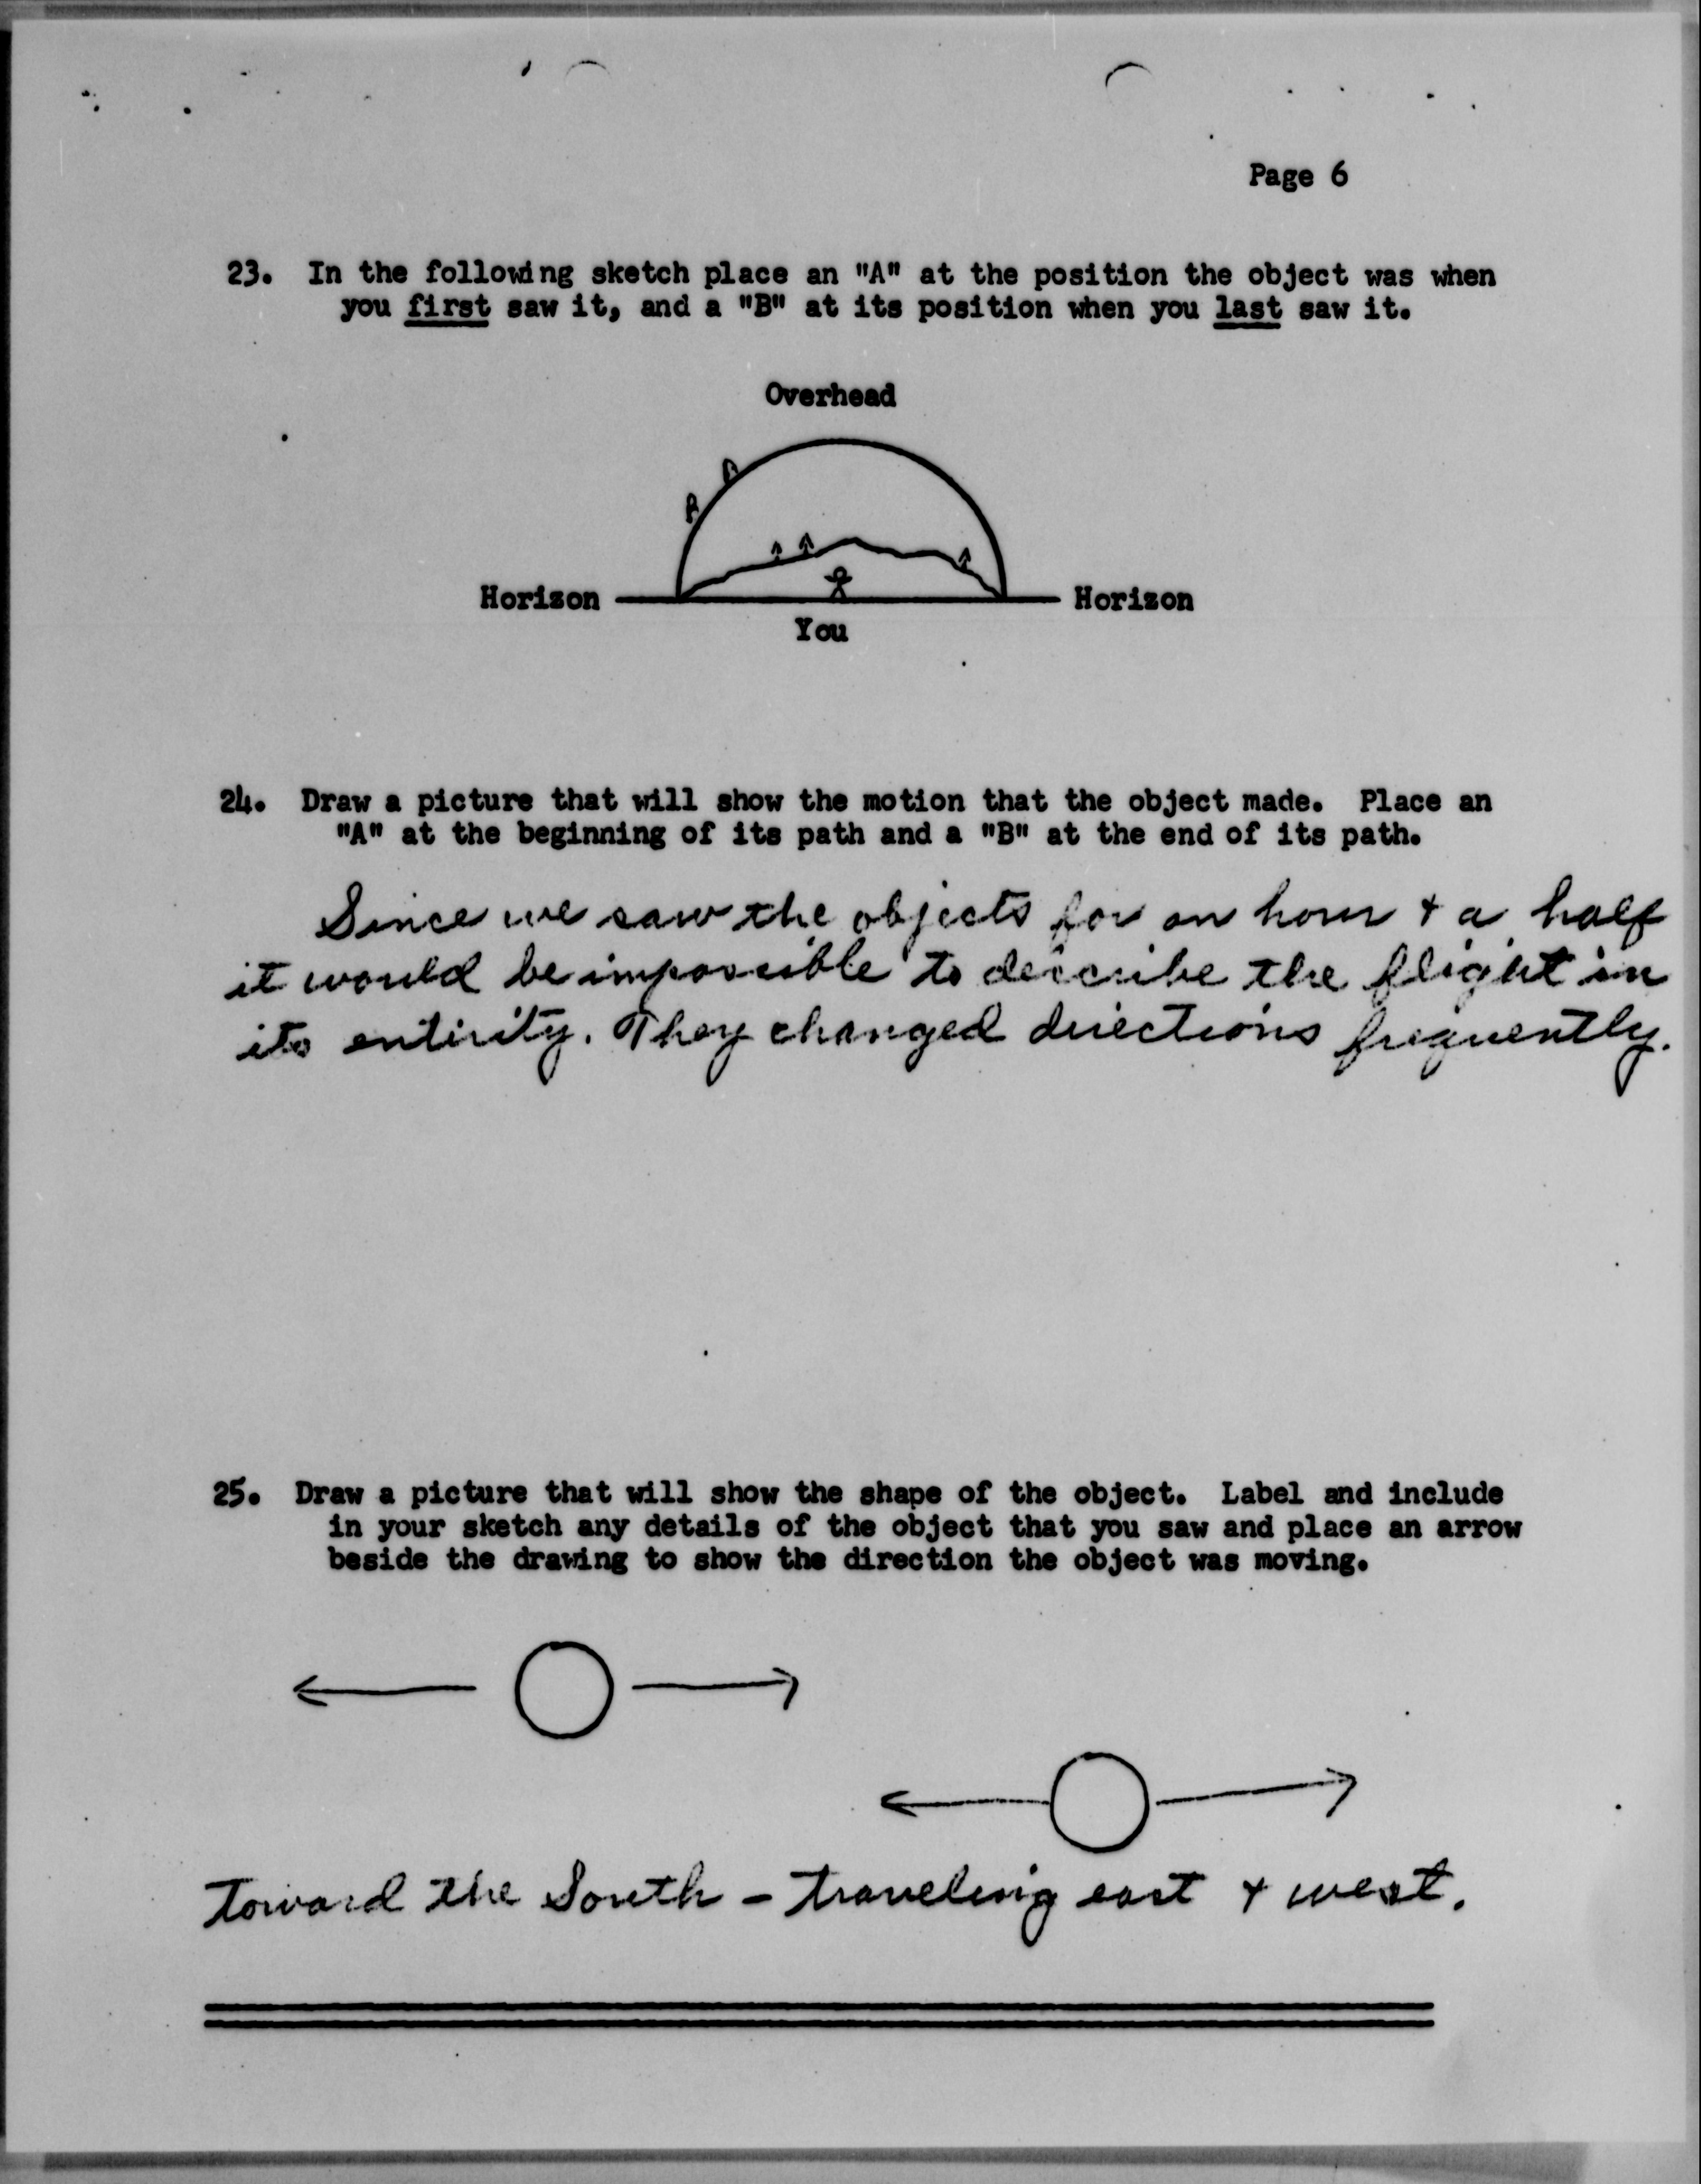 Page 6
23. In the following sketch place an "A" at the position the object was when
you first saw it, and a "B" at its position when you last saw it.
Overhead
Horizon
Horizon
You
24. Draw a picture that will show the motion that the object made. Place an
"A" at the beginning of its path and a "B" at the end of its path.
Since we saw the objects for an hour + a half
it would be impossible to describe the flight in
its entirity. They changed directions frequently.
25. Draw a picture that will show the shape of the object. Label and include
in your sketch any details of the object that you saw and place an arrow
beside the drawing to show the direction the object was moving.
Toward the South - traveling east + west.